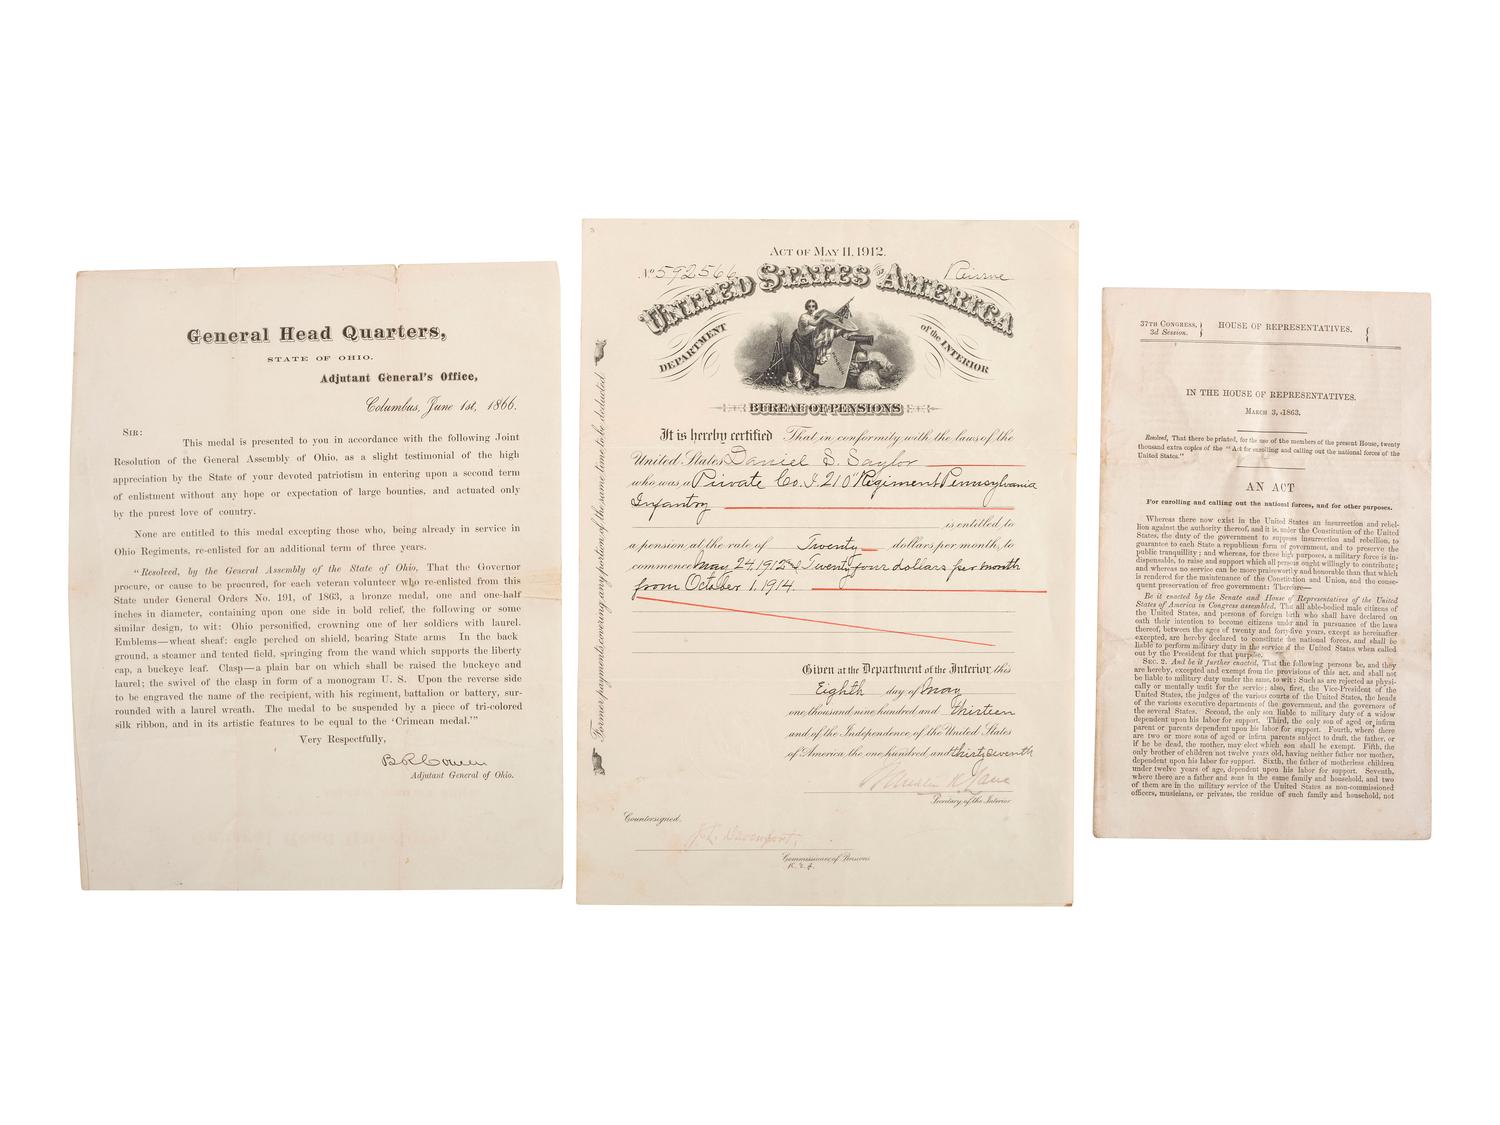 General Head Quarters,
STATE OF OHIO.
Adjutant General's Office,
Columbus, June 1st, 1866.
SIR:
This medal is presented to you in accordance with the following Joint
Resolution of the General Assembly of Ohio, as a slight testimonial of the high
appreciation by the State of your devoted patriotism in entering upon a second term
of enlistment without any hope or expectation of large bounties, and actuated only
by the purest love of country.
None are entitled to this medal excepting those who, being already in service in
Ohio Regiments, re-enlisted for an additional term of three years.
"Resolved, by the General Assembly of the State of Ohio, That the Governor
procure, or cause to be procured, for each veteran volunteer who re-enlisted from this
State under General Orders No. 191, of 1863, a bronze medal, one and one-half
inches in diameter, containing upon one side in bold relief, the following or some
similar design, to wit: Ohio personified, crowning one of her soldiers with laurel.
Emblems—wheat sheaf: eagle perched on shield, bearing State arms In the back
ground, a steamer and tented field, springing from the wand which supports the liberty
cap, a buckeye leaf. Clasp—a plain bar on which shall be raised the buckeye and
laurel; the swivel of the clasp in form of a monogram U. S. Upon the reverse side
to be engraved the name of the recipient, with his regiment, battalion or battery, sur-
rounded with a laurel wreath. The medal to be suspended by a piece of tri-colored
silk ribbon, and in its artistic features to be equal to the 'Crimean medal.'"
Very Respectfully,
B R Cowen
Adjutant General of Ohio.
ACT OF MAY 11, 1912.
No 592566
Reissue
UNITED STATES OF AMERICA
DEPARTMENT of the INTERIOR
BUREAU OF PENSIONS
It is hereby certified That in conformity with the laws of the
United States Daniel S. Saylor
who was a Private Co. I. 210" Regiment Pennsylvania
Infantry
is entitled to
a pension at the rate of Twenty dollars per month, to
commence May 24, 1912 & Twenty four dollars per month
from October 1, 1914.
Given at the Department of the Interior this
Eighth day of May
one thousand nine hundred and thirteen
and of the Independence of the United States
of America the one hundred and thirty seventh
Franklin K. Lane
Secretary of the Interior
Countersigned,
J. L. Davenport,
Commissioner of Pensions
Former payments covering any portion of the same time to be deducted.
37TH CONGRESS,
3d Session.
HOUSE OF REPRESENTATIVES.
IN THE HOUSE OF REPRESENTATIVES.
MARCH 3, 1863.
Resolved, That there be printed, for the use of the members of the present House, twenty
thousand extra copies of the "Act for enrolling and calling out the national forces of the
United States."
AN ACT
For enrolling and calling out the national forces, and for other purposes.
Whereas there now exist in the United States an insurrection and rebel-
lion against the authority thereof, and it is, under the Constitution of the United
States, the duty of the government to suppress insurrection and rebellion, to
guarantee to each State a republican form of government, and to preserve the
public tranquillity; and whereas, for these high purposes, a military force is in-
dispensable, to raise and support which all persons ought willingly to contribute;
and whereas no service can be more praiseworthy and honorable than that which
is rendered for the maintenance of the Constitution and Union, and the conse-
quent preservation of free government: Therefore—
Be it enacted by the Senate and House of Representatives of the United
States of America in Congress assembled, That all able-bodied male citizens of
the United States, and persons of foreign birth who shall have declared on
oath their intention to become citizens under and in pursuance of the laws
thereof, between the ages of twenty and forty-five years, except as hereinafter
excepted, are hereby declared to constitute the national forces, and shall be
liable to perform military duty in the service of the United States when called
out by the President for that purpose.
SEC. 2. And be it further enacted, That the following persons be, and they
are hereby, excepted and exempt from the provisions of this act, and shall not
be liable to military duty under the same, to wit: Such as are rejected as physi-
cally or mentally unfit for the service; also, first, the Vice-President of the
United States, the judges of the various courts of the United States, the heads
of the various executive departments of the government, and the governors of
the several States. Second, the only son liable to military duty of a widow
dependent upon his labor for support. Third, the only son of aged or infirm
parent or parents dependent upon his labor for support. Fourth, where there
are two or more sons of aged or infirm parents subject to draft, the father, or
if he be dead, the mother, may elect which son shall be exempt. Fifth, the
only brother of children not twelve years old, having neither father nor mother,
dependent upon his labor for support. Sixth, the father of motherless children
under twelve years of age, dependent upon his labor for support. Seventh,
where there are a father and sons in the same family and household, and two
of them are in the military service of the United States as non-commissioned
officers, musicians, or privates, the residue of such family and household, not